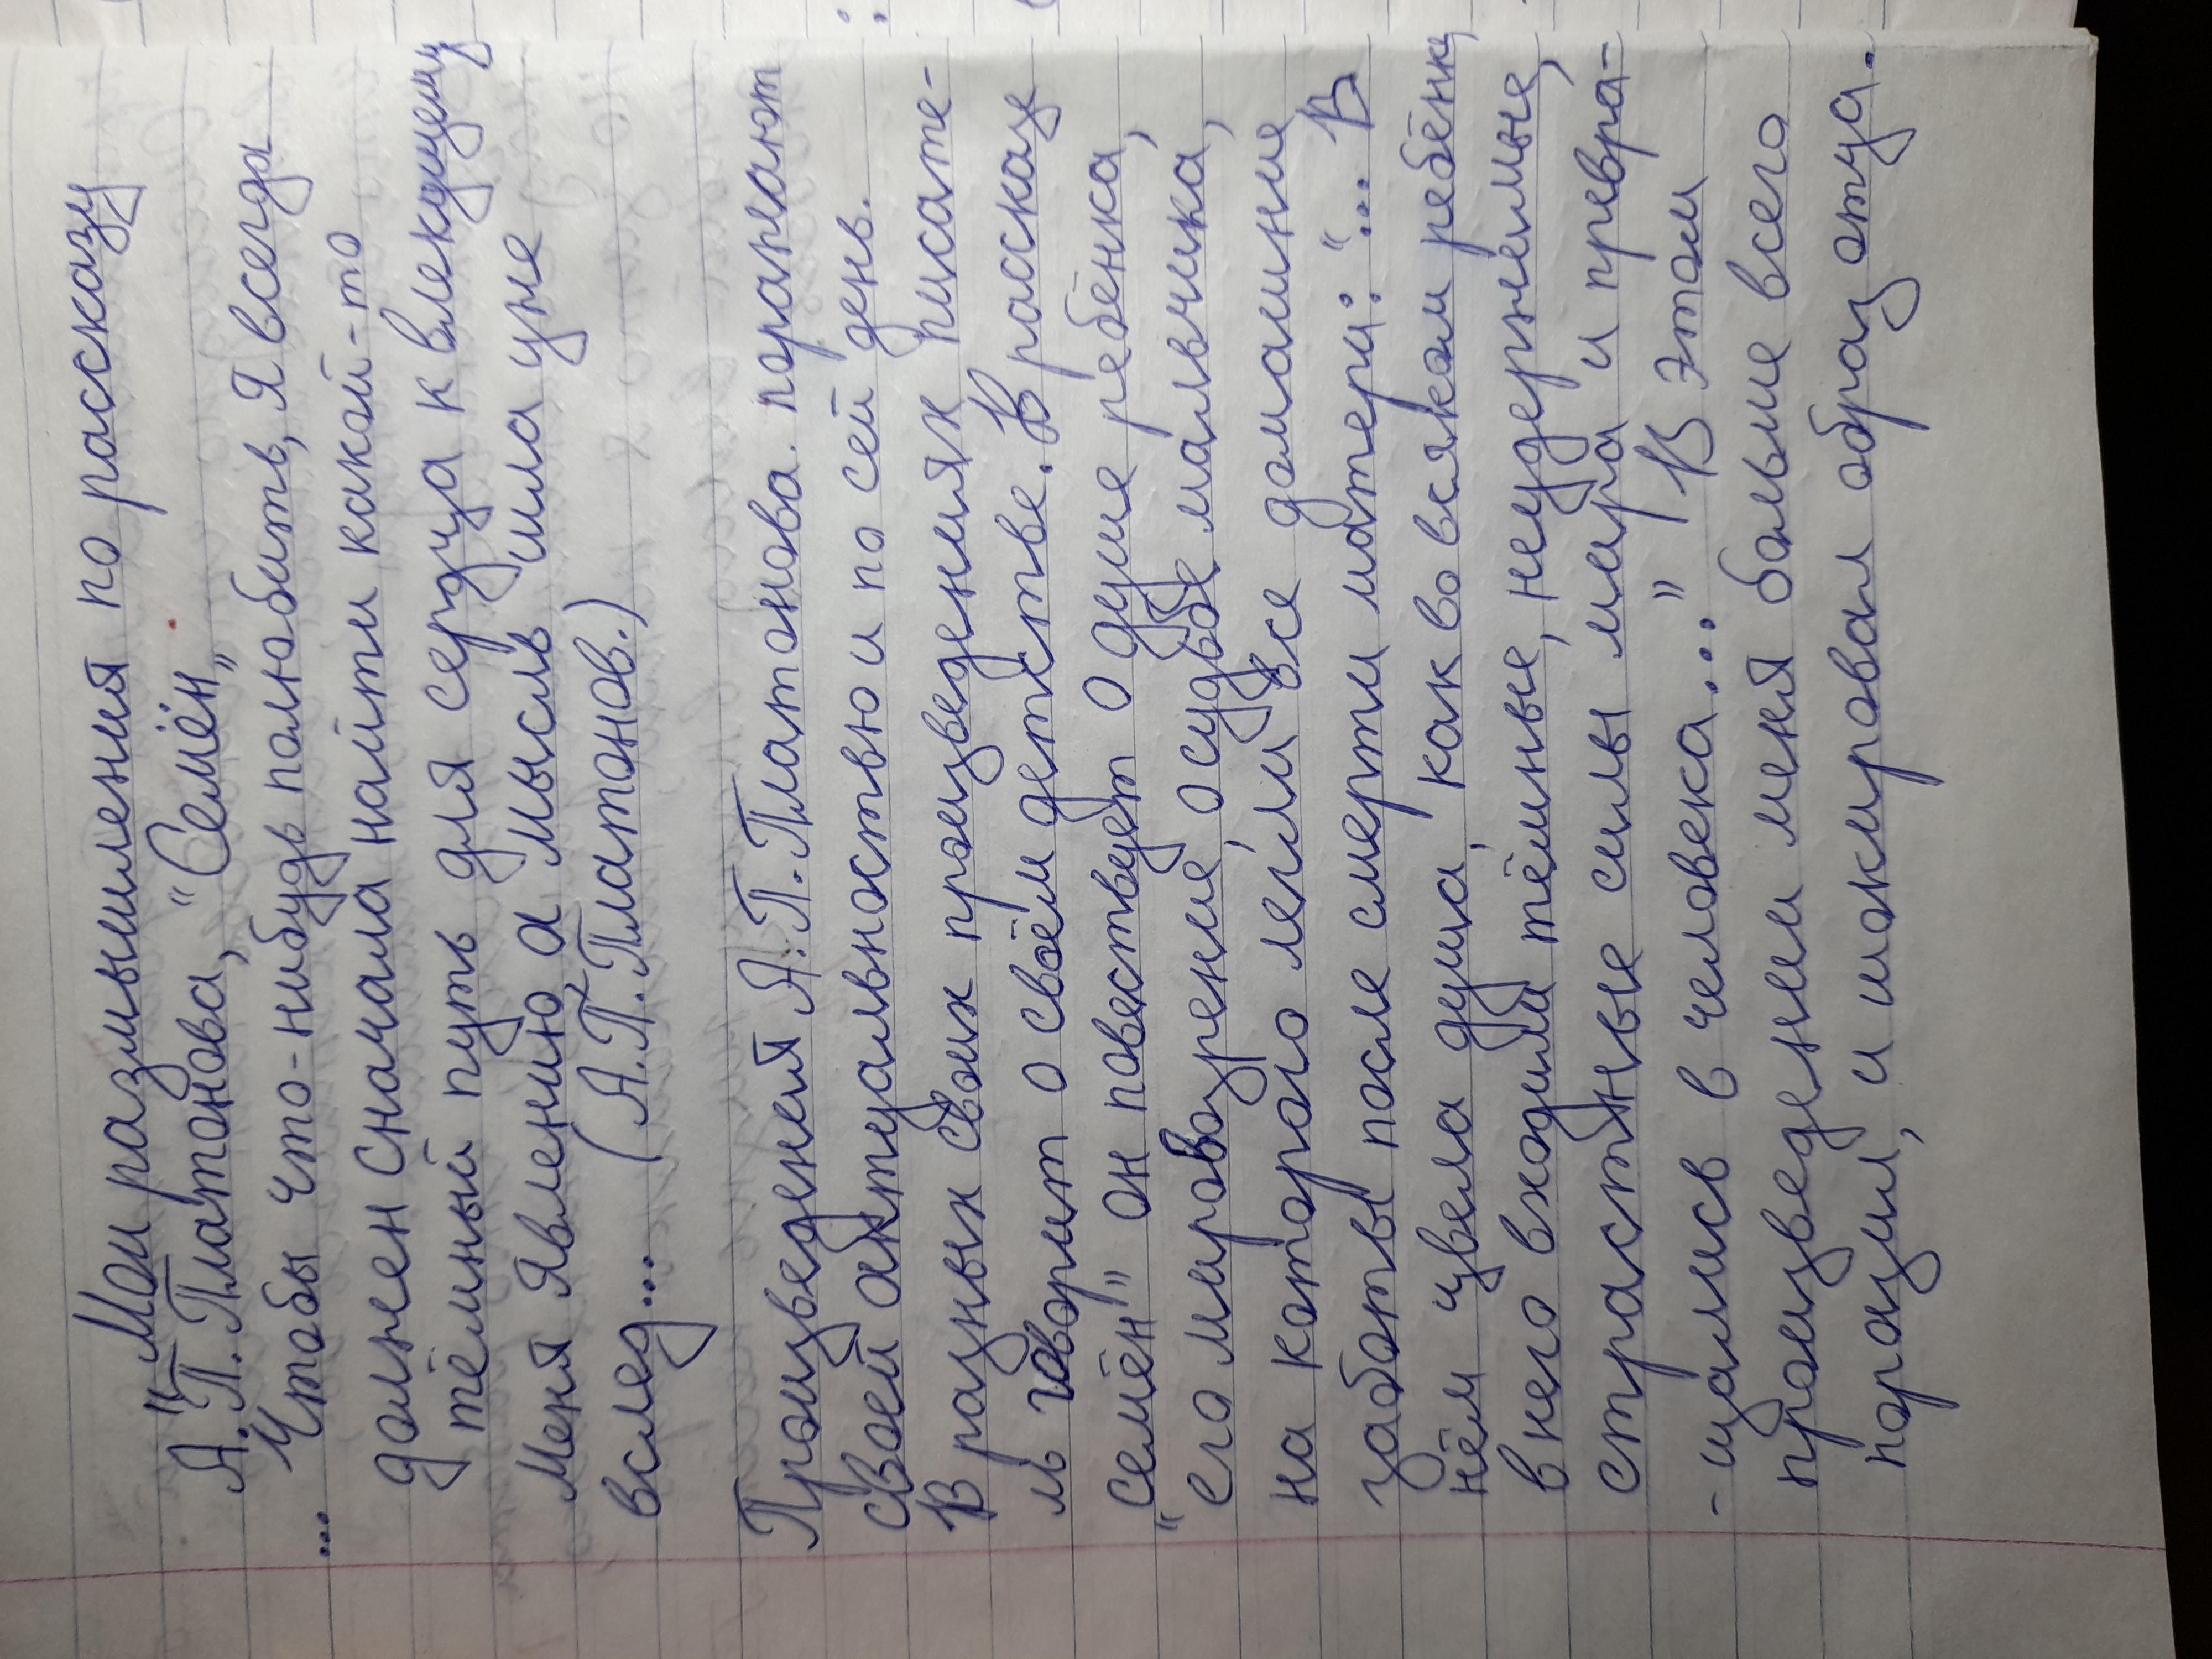 Мои размышления по рассказу
А. П. Платонова, "Семён„
... "Чтобы что-нибудь полюбить, я всегда
должен сначала найти какой-то
тёмный путь для сердца к влекущему
меня явлению, а мысль шла уже
вслед... (А.П.Платонов.)
Произведения А.П.Платонова поражают
своей актуальностью и по сей день.
В разных своих произведениях писате-
ль говорит о своём детстве. В рассказе
"Семён" он повествует о душе ребёнка,
его мировозрение, о судьбе мальчика,
на которого легли все домашние
заботы после смерти матери: "... В
нём цвела душа, как во всяком ребёнке,
в него входили тёмные, неудержимые,
страстные силы мира и превра-
-щались в человека...." В этом
произведении меня больше всего
поразил, и шокировал образ отца.